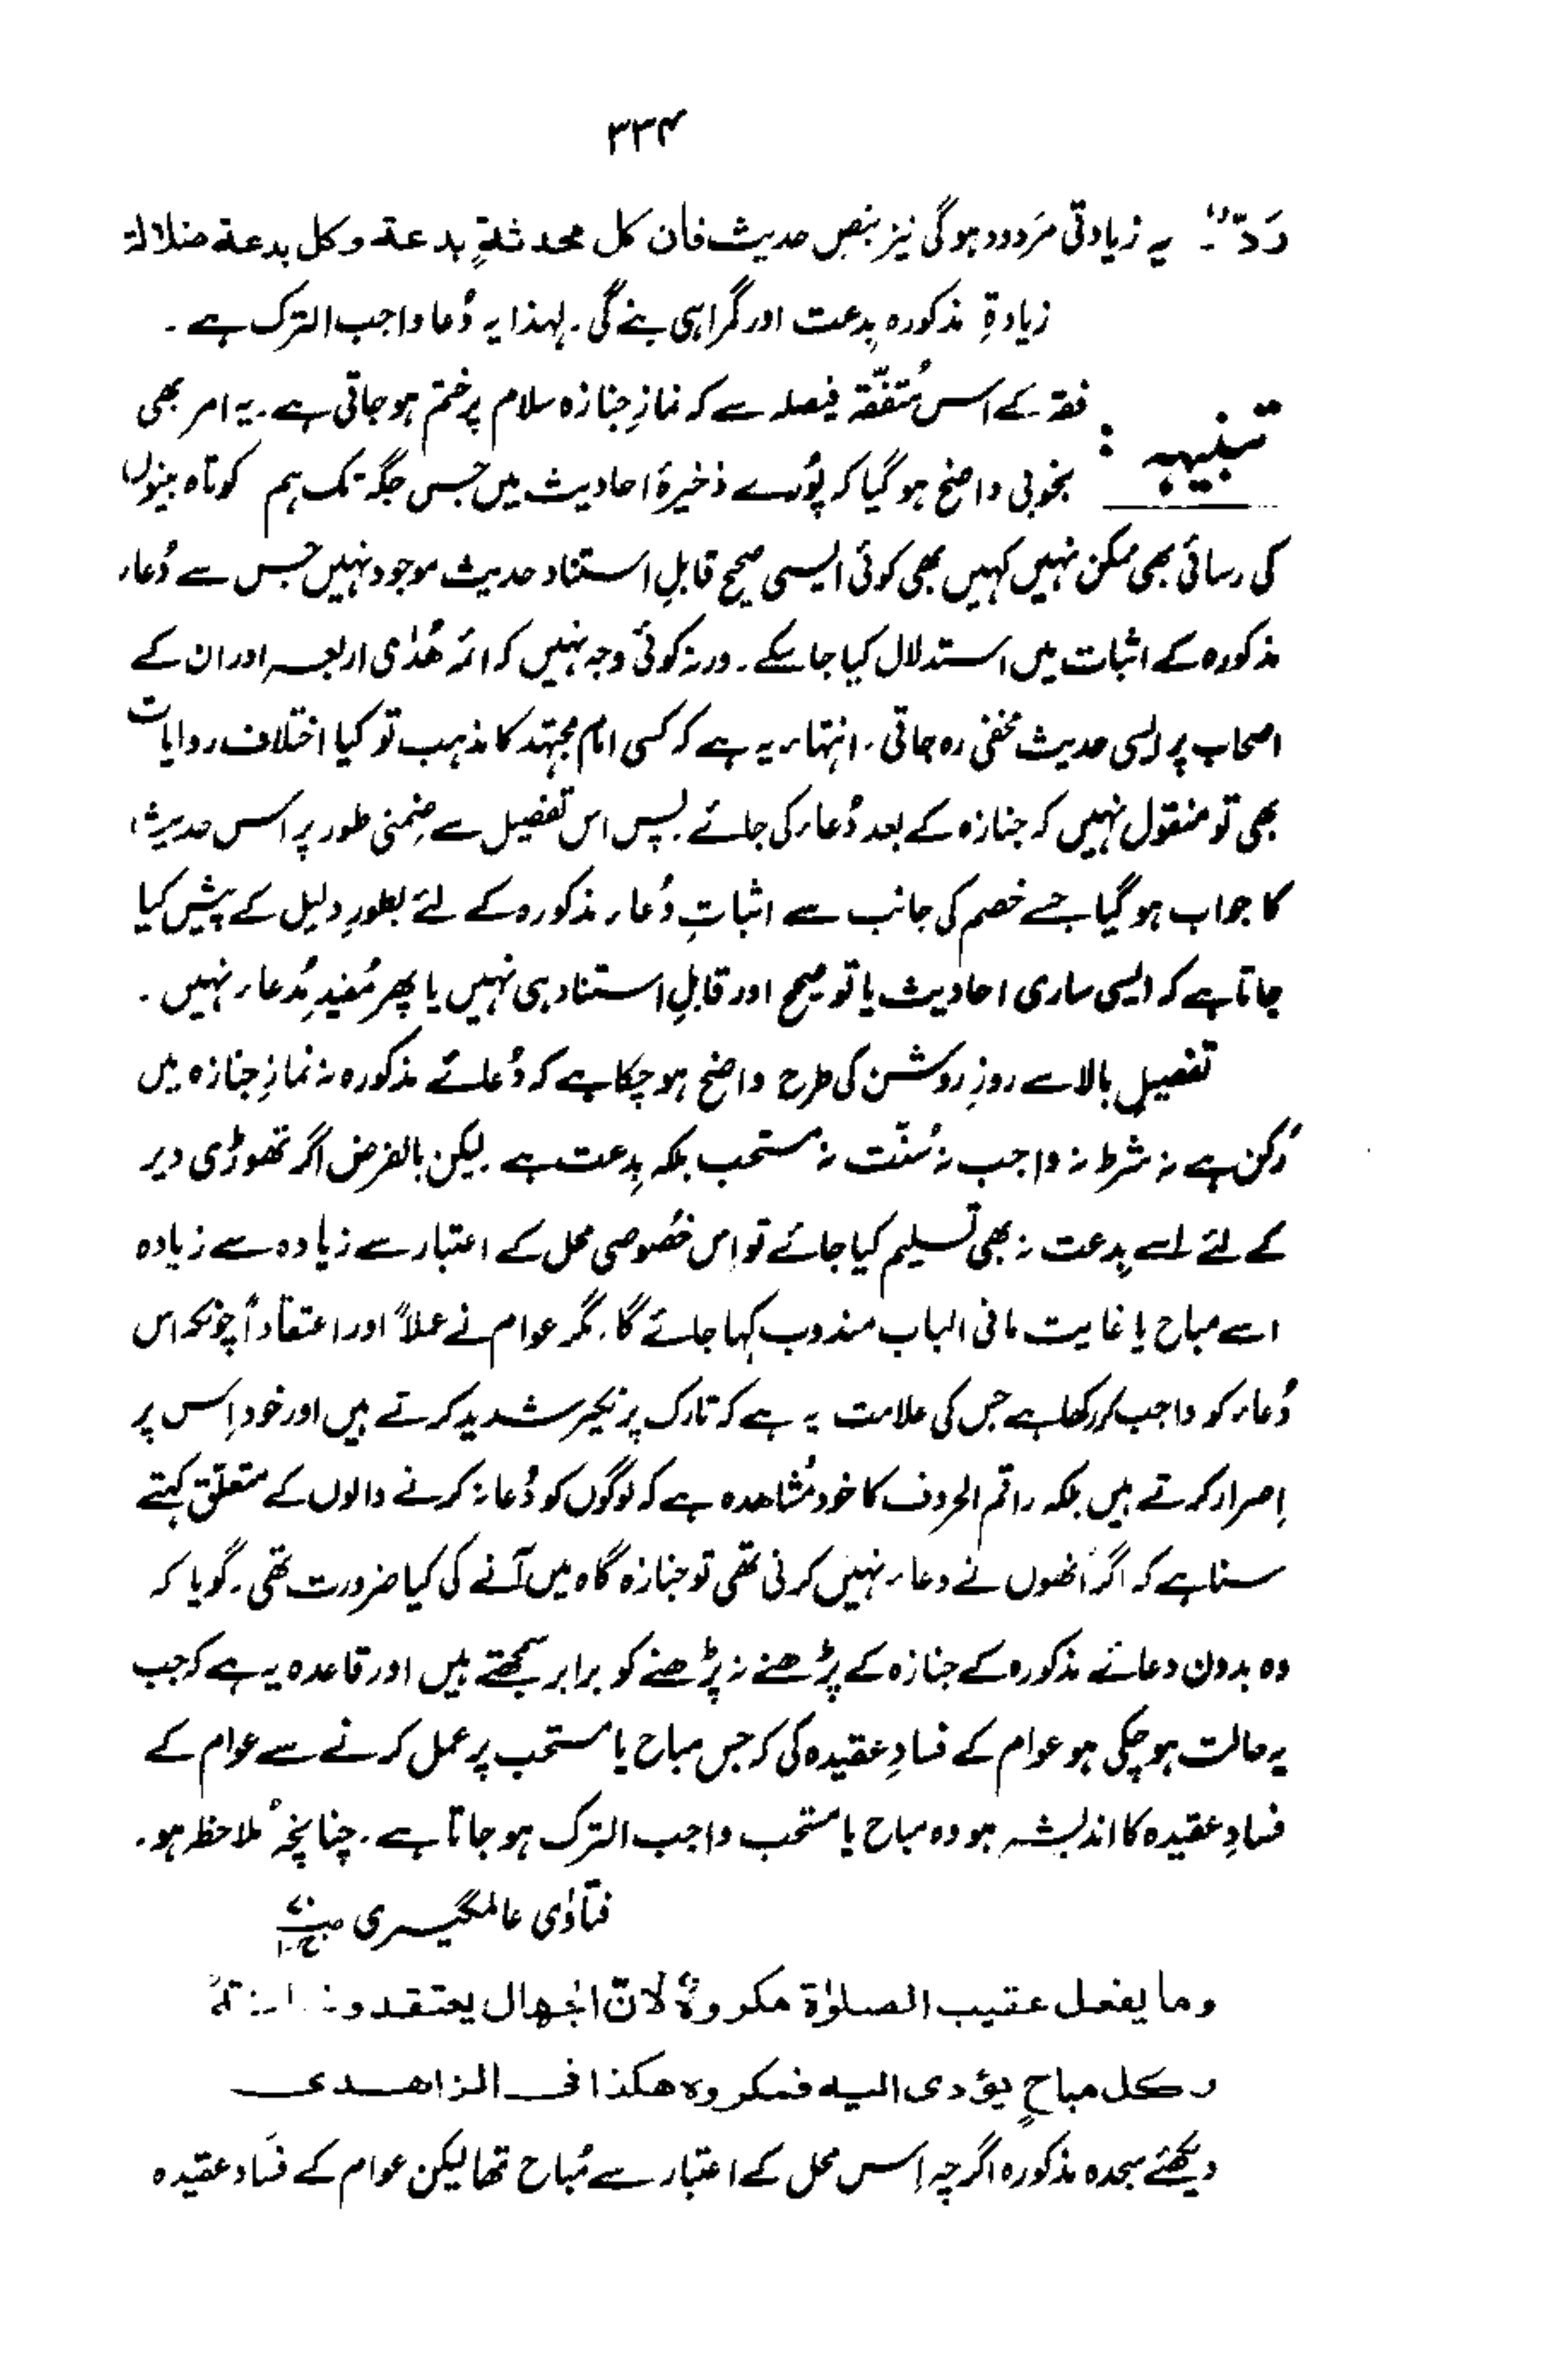 ۳۳۴
رَدّ"۔ یہ زیادتی مَردود ہوگی نیز بنص حدیث فان کل محدثةٍ بدعة وکل بدعة ضلالة
زیادةِ مذکورہ بِدعت اور گمراہی بنے گی۔ لہٰذا یہ دُعا واجب الترک ہے۔
تنبیہہ : فقہ کے اس مُتفقّہ فیصلہ سے کہ نمازِ جنازہ سلام پر ختم ہو جاتی ہے۔ یہ امر بھی
بخوبی واضح ہو گیا کہ پُورے ذخیرۂ احادیث میں جس جگہ تک ہم کوتاہ بینوں
کی رسائی بھی ممکن نہیں کہیں بھی کوئی ایسی صحیح قابلِ استناد حدیث موجود نہیں جس سے دُعاء
مذکورہ کے اثبات میں استدلال کیا جا سکے۔ ورنہ کوئی وجہ نہیں کہ ائمہ ھُدٰی اربعہ اور ان کے
اصحاب پر ایسی حدیث مخفی رہ جاتی۔ انتہاء یہ ہے کہ کسی امام مجتہد کا مذہب تو کیا اختلاف روایات
بھی تو منقول نہیں کہ جنازہ کے بعد دُعاء کی جائے۔ پس اس تفصیل سے ضِمنی طور پر اس حدیث
کا جواب ہو گیا جسے خصم کی جانب سے اثباتِ دُعاء مذکورہ کے لئے بطورِ دلیل کے پیش کیا
جاتا ہے کہ ایسی ساری احادیث یا تو صحیح اور قابلِ استناد ہی نہیں یا پھر مُفیدِ مُدعاء نہیں۔
تفصیلِ بالا سے روزِ روشن کی طرح واضح ہو چکا ہے کہ دُعائے مذکورہ نہ نمازِ جنازہ میں
رُکن ہے نہ شرط نہ واجب نہ سُنّت نہ مستحب بلکہ بِدعت ہے۔ لیکن بالفرض اگر تھوڑی دیر
کے لئے اسے بِدعت نہ بھی تسلیم کیا جائے تو اِس خصُوصی محل کے اعتبار سے زیادہ سے زیادہ
اسے مباح یا غایت مافی الباب مندوب کہا جائے گا۔ مگر عوام نے عملاً اور اعتقاداً چونکہ اس
دُعاء کو واجب کر رکھا ہے جس کی علامت یہ ہے کہ تارک پر نکیر شدید کرتے ہیں اور خود اِس پر
اِصرار کرتے ہیں بلکہ راقم الحروف کا خود مُشاھدہ ہے کہ لوگوں کو دُعا نہ کرنے والوں کے متعلّق کہتے
سنا ہے کہ اگر اُنھوں نے دعاء نہیں کرنی تھی تو جنازہ گاہ میں آنے کی کیا ضرورت تھی۔ گویا کہ
وہ بدون دعائے مذکورہ کے جنازہ کے پڑھنے نہ پڑھنے کو برابر سمجھتے ہیں اور قاعدہ یہ ہے کہ جب
یہ حالت ہو چکی ہو عوام کے فسادِ عقیدہ کی کہ جس مباح یا مستحب پر عمل کرنے سے عوام کے
فسادِ عقیدہ کا اندیشہ ہو وہ مباح یا مستحب واجب الترک ہو جاتا ہے۔ چنانچہ مُلاحظہ ہو۔
فتاوٰی عالمگیری
وما یفعل عقیب الصلوٰۃ مکروہٌ لانّ الجھال یعتقدونھا سنۃً
وکل مباحٍ یؤدی الیہ فمکروہ ھکذا فی الزاھدی
دیکھئے سجدہ مذکورہ اگرچہ اِس محل کے اعتبار سے مُباح تھا لیکن عوام کے فسَاد عقیدہ